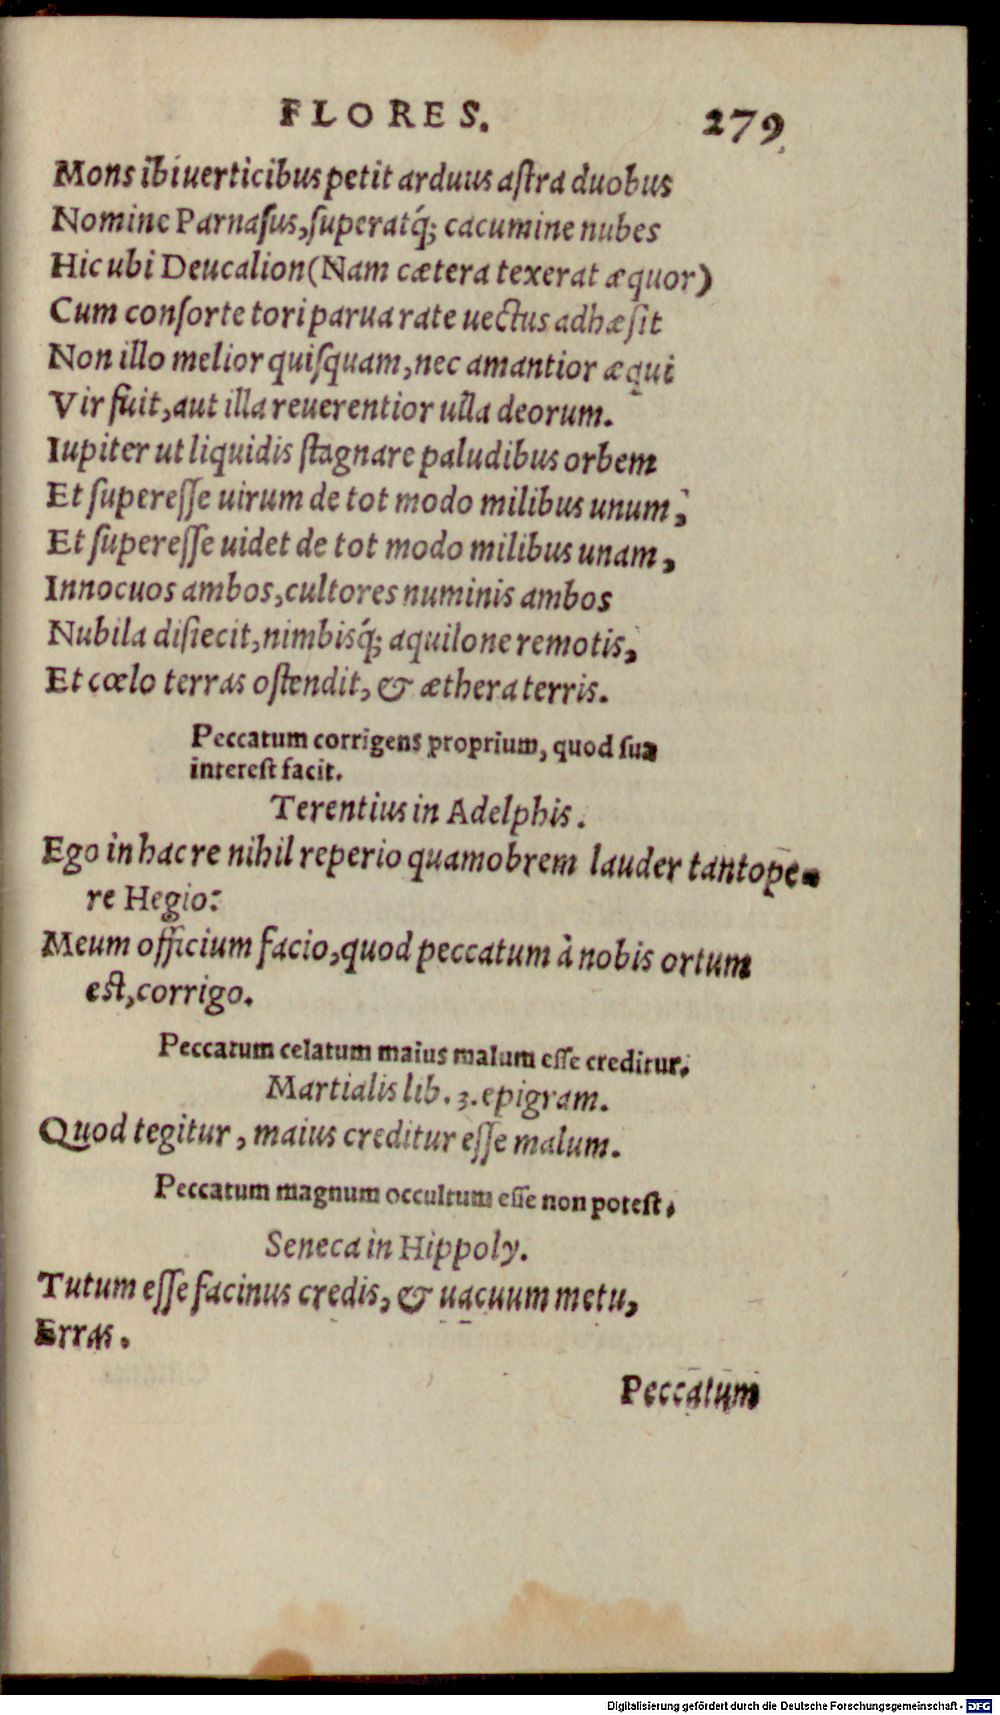 FLORES. 279
Mons ibi uerticibus petit arduus aſtra duobus
Nomine Parnaſus, ſuperatq́; cacumine nubes
Hic ubi Deucalion (Nam cætera texerat æquor)
Cum conſorte tori parua rate uectus adhæſit
Non illo melior quiſquam, nec amantior æqui
Vir fuit, aut illa reuerentior ulla deorum.
Iupiter ut liquidis ſtagnare paludibus orbem
Et ſupereſſe uirum de tot modo milibus unum,
Et ſupereſſe uidet de tot modo milibus unam,
Innocuos ambos, cultores numinis ambos
Nubila diſiecit, nimbisq́; aquilone remotis,
Et cœlo terras oſtendit, & æthera terris.
Peccatum corrigens proprium, quod ſua
intereſt facit.
Terentius in Adelphis.
Ego in hac re nihil reperio quamobrem lauder tantope-
re Hegio:
Meum officium facio, quod peccatum à nobis ortum
eſt, corrigo.
Peccatum celatum maius malum eſſe creditur.
Martialis lib. 3. epigram.
Quod tegitur, maius creditur eſſe malum.
Peccatum magnum occultum eſſe non poteſt.
Seneca in Hippoly.
Tutum eſſe facinus credis, & uacuum metu,
Erras.
Peccatum
Digitalisierung gefördert durch die Deutsche Forschungsgemeinschaft - DFG